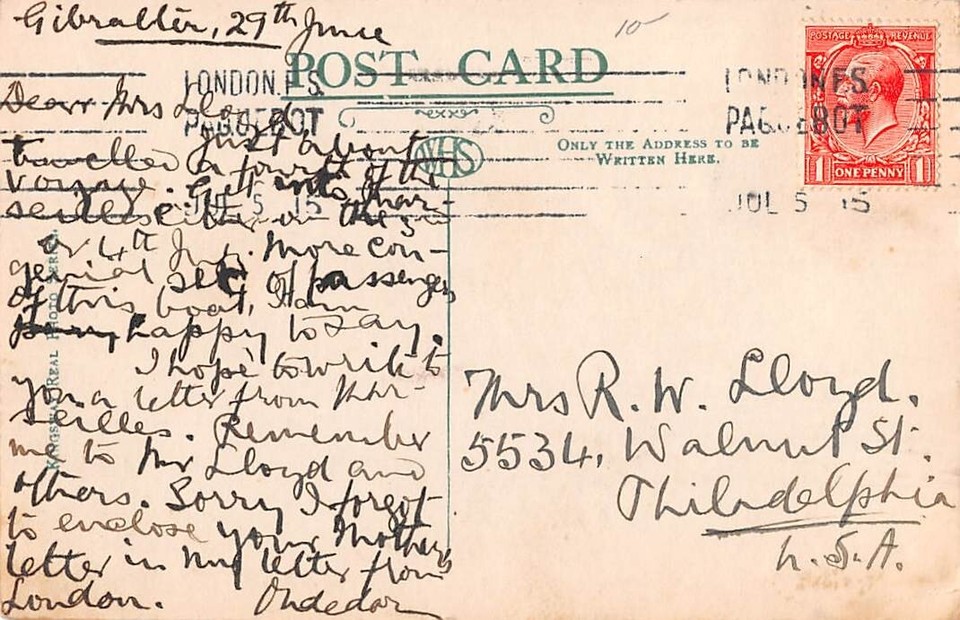 Gibralter, 29th June
10
POST CARD
LONDON. F.S.
PAQUEBOT
JUL 5 15
LONDON F.S.
PAQUEBOT
JUL 5 15
POSTAGE REVENUE
1 ONE PENNY 1
WHS
ONLY THE ADDRESS TO BE
WRITTEN HERE.
KINGSWAY REAL PHOTO SERIES.
Dear Mrs Lloyd
Just about
travelled a fourth of the
voyage. Get into Mar-
seilles either on the 3rd
or 4th July. More con-
genial set of passengers
of this boat, I am
happy to say.
I hope to write to
you a letter from Mar-
seilles. Remember
me to Mr Lloyd and
others. Sorry I forgot
to enclose your Mother's
letter in my letter from
London.
Mrs R. W. Lloyd.
5534, Walnut St.
Philadelphia
U.S.A.